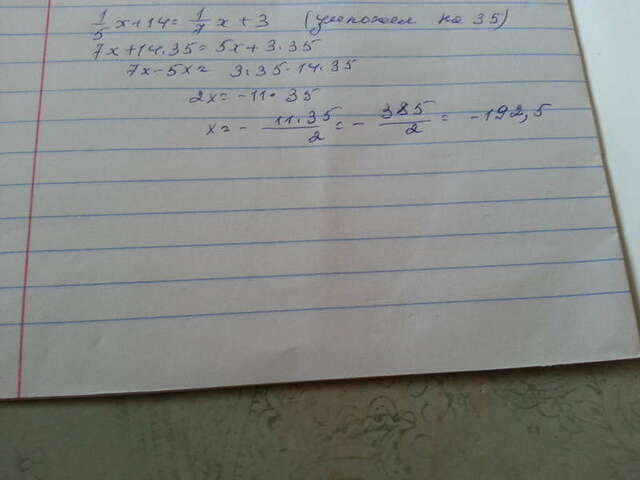 1/5 x + 14 = 1/7 x + 3 (умножаем на 35)
7x + 14 · 35 = 5x + 3 · 35
7x - 5x = 3 · 35 - 14 · 35
2x = -11 · 35
x = - 11 · 35/2 = - 385/2 = -192,5